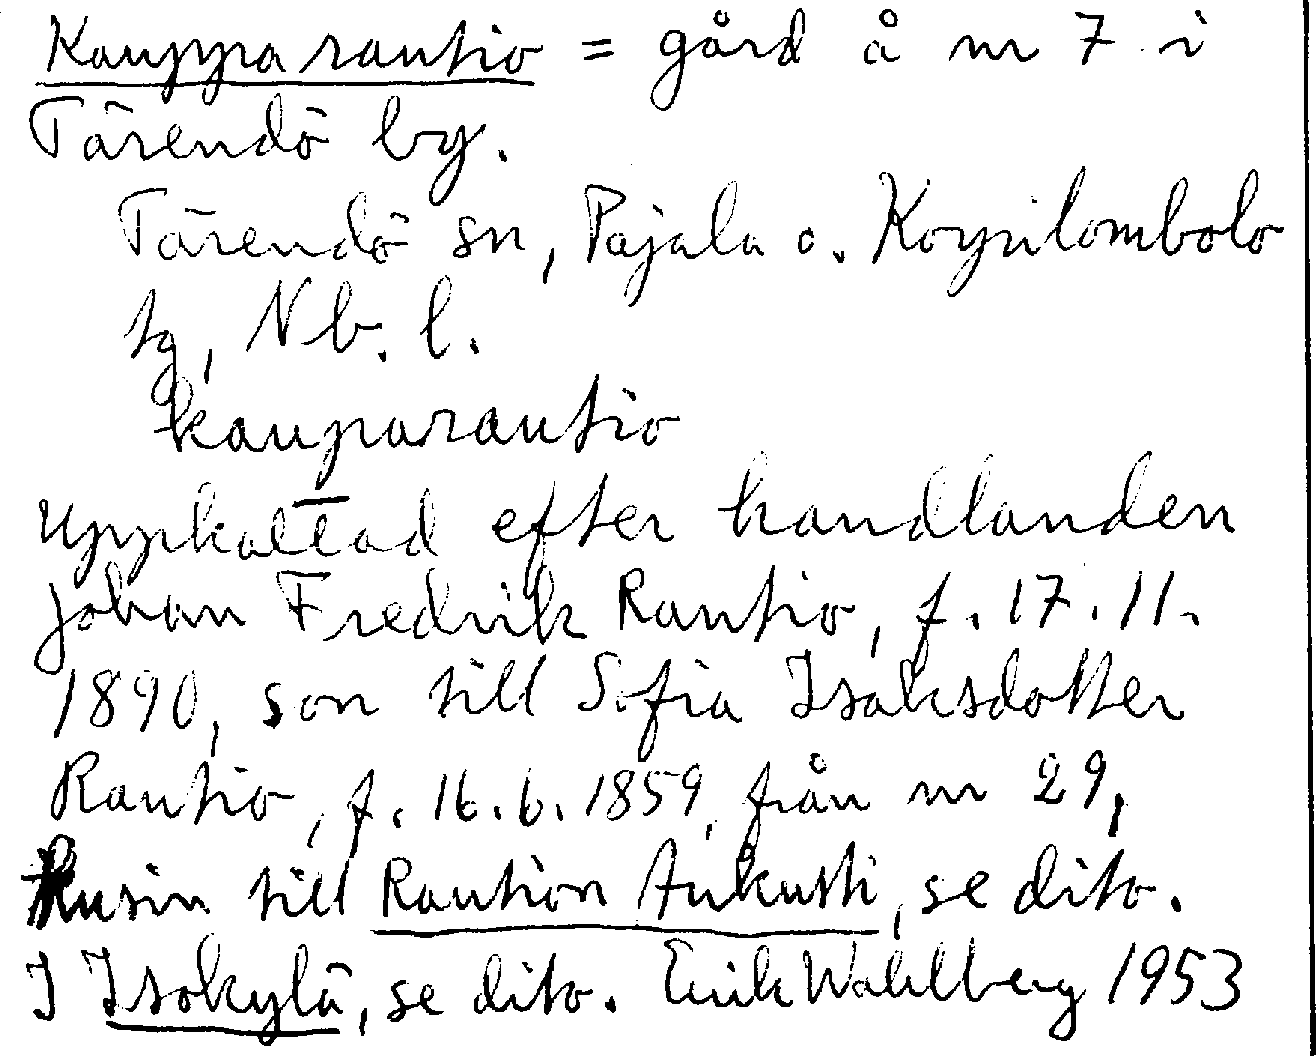 Kauppa rautio = gård å nr 7 i
Tärendö by.
Tärendö sn, Pajala o. Korpilombolo
tg, Nb. l.
kauparautio
Uppkallad efter handlanden
Johan Fredrik Rautio, f. 17.11.
1890, son till Sofia Isaksdotter
Rautio, f. 16.6.1859, från nr 29,
Kusin till Raution Aukusti, se dito.
I Isokylä, se dito. Erik Wahlberg 1953